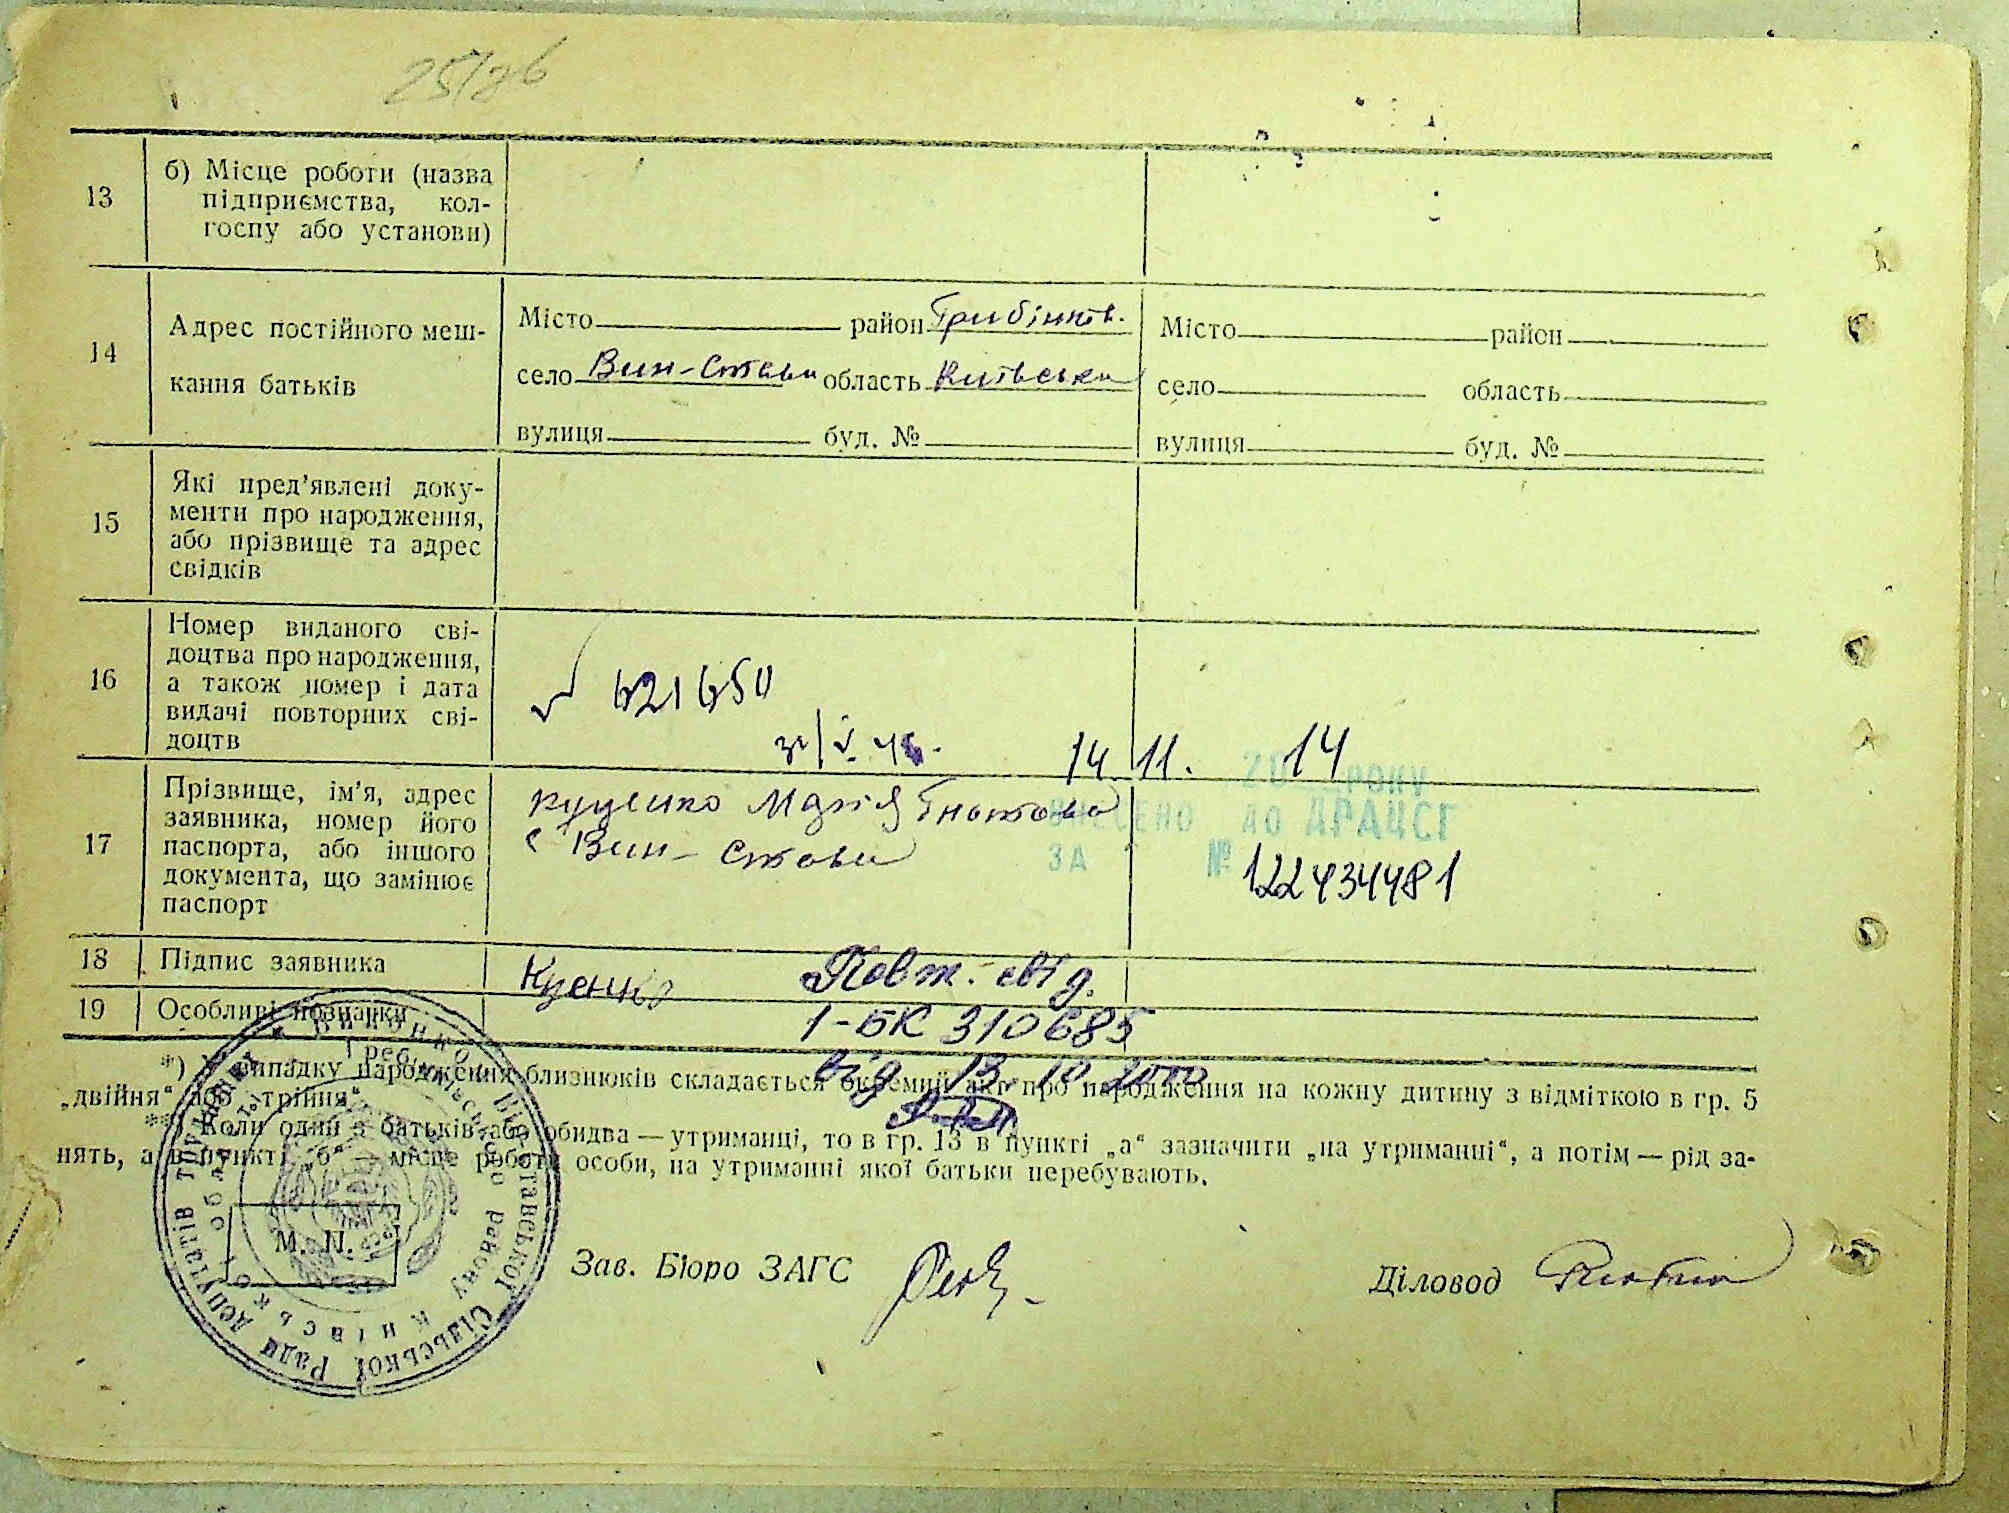 25/26
13
б) Місце роботи (назва
підприємства, кол-
госпу або установи)
14
Адрес постійного меш-
кання батьків
Місто район Гребінків.
село Вин-Стави область Київська
вулиця буд. №
Місто район
село область
вулиця буд. №
15
Які пред’явлені доку-
менти про народження,
або прізвище та адрес
свідків
16
Номер виданого сві-
доцтва про народження,
а також номер і дата
видачі повторних сві-
доцтв
621650
14 11. 14
20 РОКУ
17
Прізвище, ім’я, адрес
заявника, номер його
паспорта, або іншого
документа, що замінює
паспорт
Куценко Марія Гнатовна
с Вин-Стави
ВНЕСЕНО ДО ДРАЦСГ
ЗА № 122434481
18
Підпис заявника
19
Особливі познаки
Повт. свід.
1-БК 310685
від 13.10.2000
*) У випадку народження близнюків складається окремий акт про народження на кожну дитину з відміткою в гр. 5
„двійня“ або „трійня“.
**) Коли один з батьків або обидва — утриманці, то в гр. 13 в пункті „а“ зазначити „на утриманні“, а потім — рід за-
нять, а в пункті „б“ — місце роботи особи, на утриманні якої батьки перебувають.
М. П.
Зав. Бюро ЗАГС
Діловод
Виконком Вин-Ставської Сільської Ради депутатів трудящих
Гребінківського району Київської області